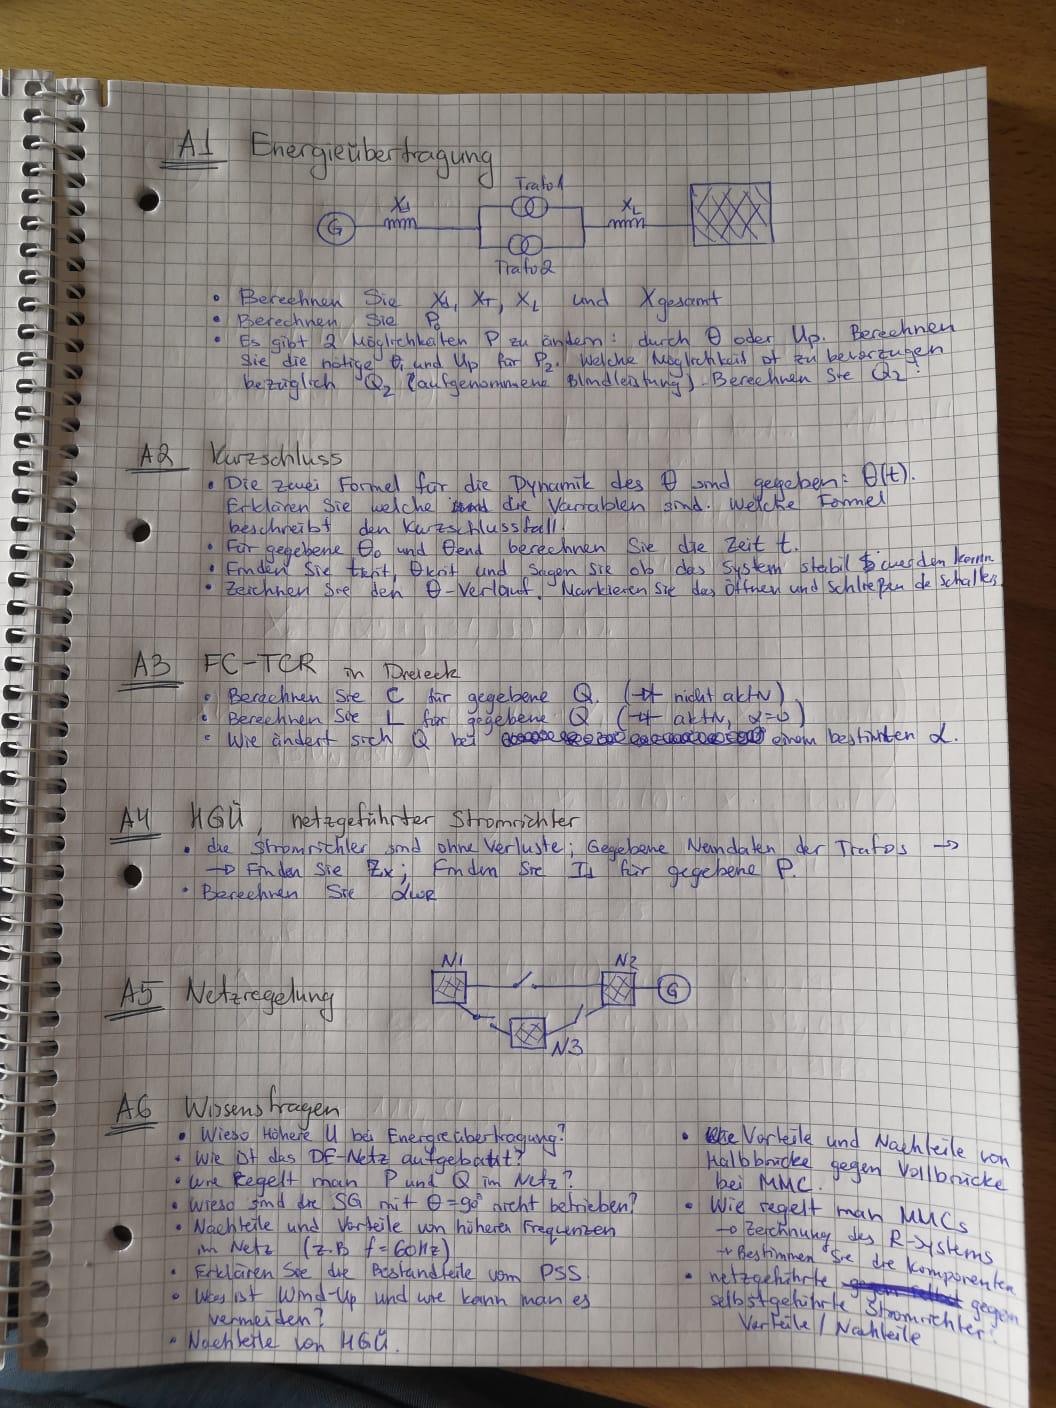 A1 Energieübertragung
Trafo1
G Xd XL
Trafo2
• Berechnen Sie Xd, XT, XL und Xgesamt
• Berechnen Sie P0
• Es gibt 2 Möglichkeiten P zu ändern: durch θ oder Up. Berechnen
Sie die nötige θ, und Up für P2. Welche Möglichkeit ist zu bevorzugen
bezüglich Q2 (aufgenommene Blindleistung). Berechnen Sie Q2!
A2 Kurzschluss
• Die zwei Formel für die Dynamik des θ sind gegeben: θ(t).
Erklären Sie welche die Variablen sind. Welche Formel
beschreibt den Kurzschlussfall!
• Für gegebene θ0 und θend berechnen Sie die Zeit t.
• Finden Sie tkrit, θkrit und sagen Sie ob das System stabil werden kann
• Zeichnen Sie den θ-Verlauf. Markieren Sie das Öffnen und Schließen de Schalters
A3 FC-TCR in Dreieck
• Berechnen Sie C für gegebene Q. (nicht aktiv).
• Berechnen Sie L für gegebene Q (aktiv, α=0)
• Wie ändert sich Q bei einem bestimten α.
A4 HGÜ, netzgeführter Stromrichter
• die Stromrichter sind ohne Verluste; Gegebene Nenndaten der Trafos →
→ Finden Sie Zx; Finden Sie Id für gegebene P.
• Berechnen Sie αWR
N1 N2
A5 Netzregelung G
N3
A6 Wissensfragen
• Wieso Höhere U bei Energieübertragung?
• Wie ist das DE-Netz aufgebaut?
• Wie Regelt man P und Q im Netz?
• Wieso sind die SG mit θ=90° nicht betrieben?
• Nachteile und Vorteile von höheren Frequenzen
im Netz (z.B f=60Hz)
• Erklären Sie die Bestandteile vom PSS.
• Was ist Wind-Up und wie kann man es
vermeiden?
• Nachteile von HGÜ.
• Vorteile und Nachteile von
Halbbrücke gegen Vollbrücke
bei MMC.
• Wie regelt man MMCs
→ Zeichnung des R-Systems
→ Bestimmen Sie die Komponenten
• netzgeführte gegen
selbstgeführte Stromrichter:
Vorteile / Nachteile